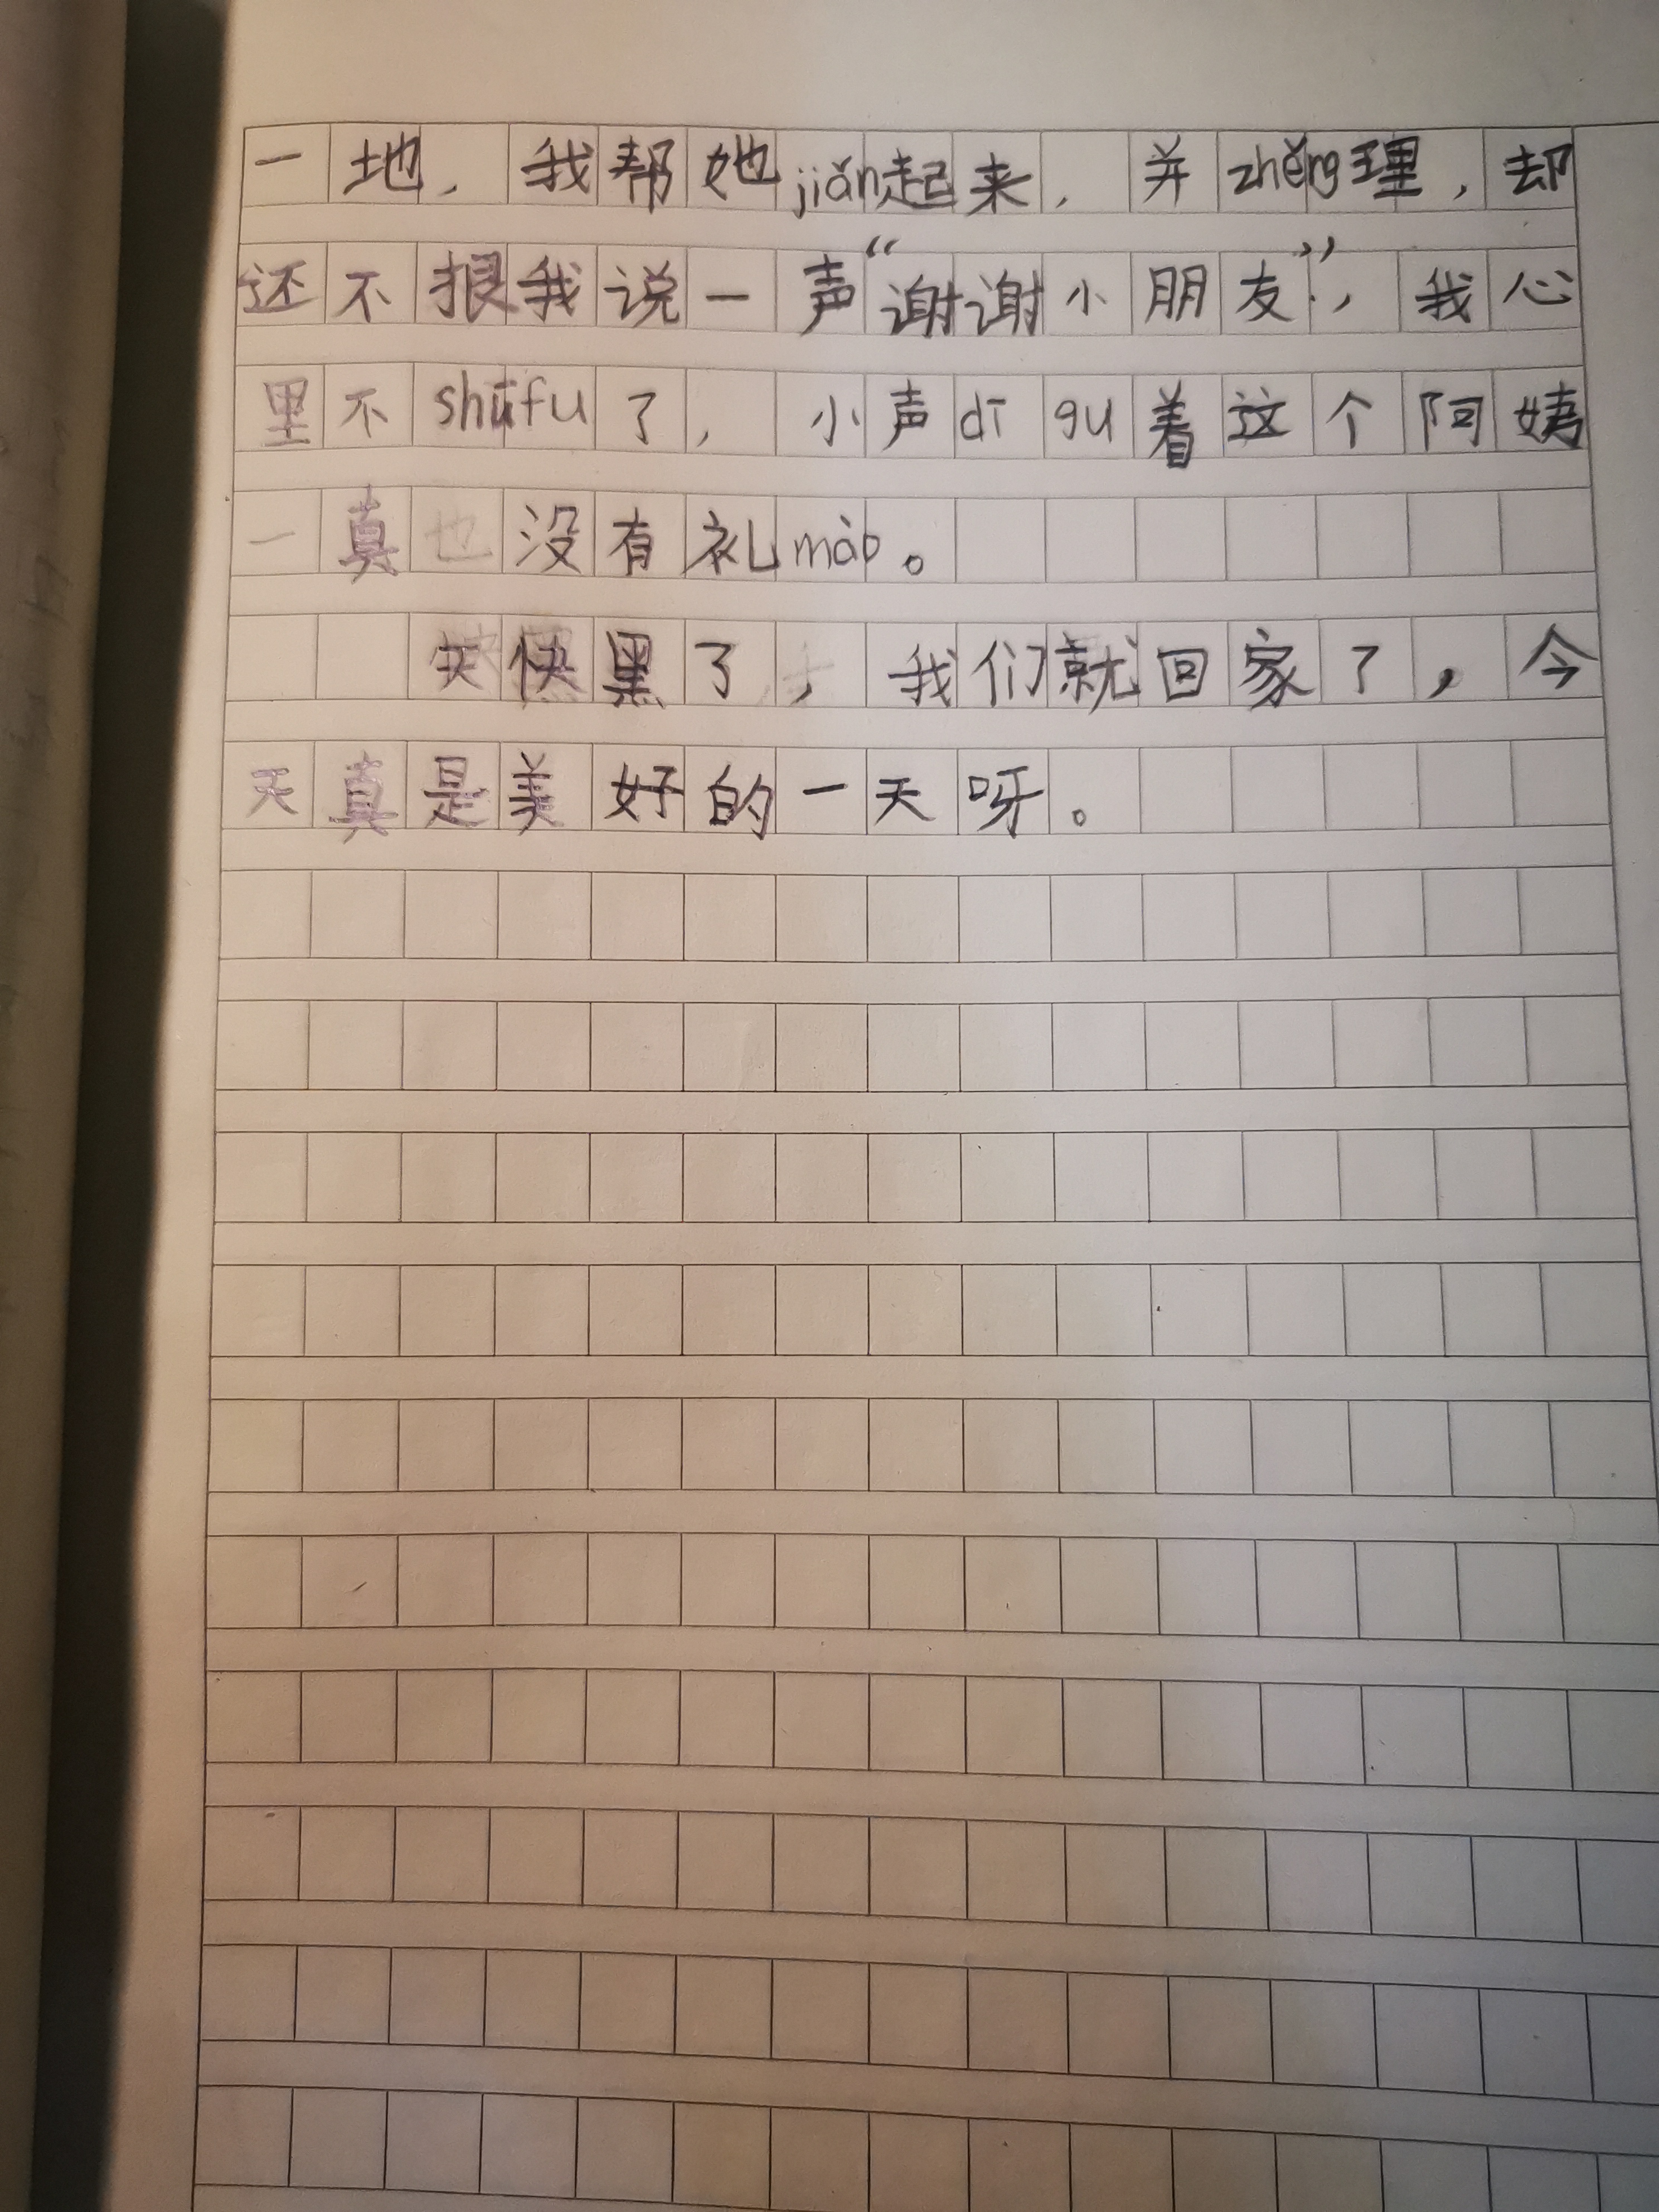 一地，我帮她jiǎn起来，并zhěng理，却
还不报我说一声“谢谢小朋友”，我心
里不shūfu了，小声dī gu着这个阿姨
一真也没有礼mào。
天快黑了，我们就回家了，今
天真是美好的一天呀。